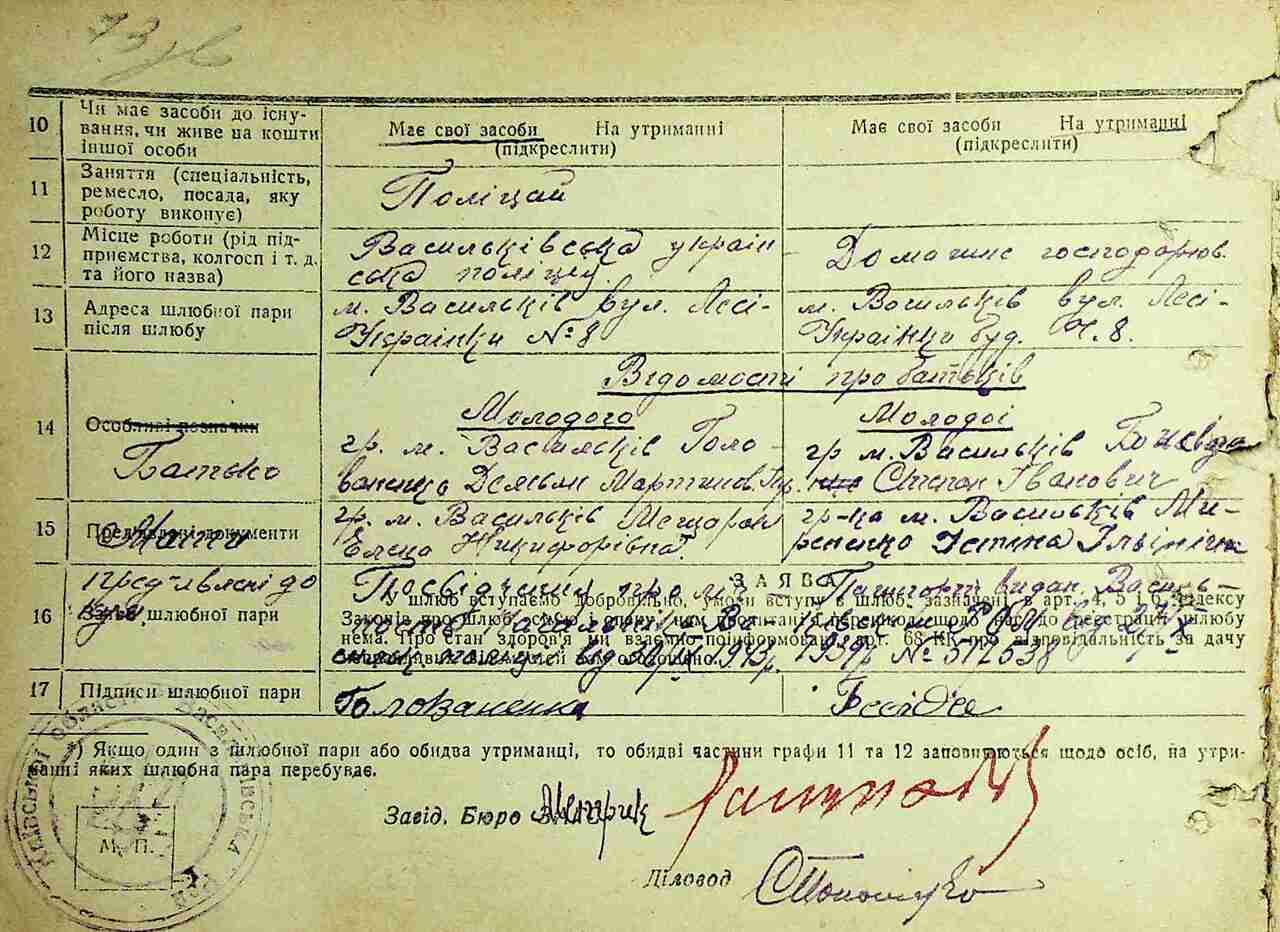 10 Чи має засоби до існу-
вання, чи живе на кошти
іншої особи
Має свої засоби На утриманні
(підкреслити)
Має свої засоби На утриманні
(підкреслити)
11 Заняття (спеціальність,
ремесло, посада, яку
роботу виконує)
Поліцай
12 Місце роботи (рід під-
приємства, колгосп і т. д.
та його назва)
Васильківська україн
ська поліція
Домашнє господарюв.
13 Адреса шлюбної пари
після шлюбу
м. Васильків вул. Лесі-
Українки № 8
м. Васильків вул. Лесі-
Українки буд. Ч. 8.
Відомості про батьків
14 Особливі позначки
Батько
Молодого
гр. м. Васильків Голо-
ваненко Демьян Мартинов.
Молодої
гр м. Васильків
Степан Іванович
15 Пред'явлені документи
Мати
гр. м. Васильків
Елена Никифорівна
гр-ка м. Васильків Ми-
роненко Устина Ільінічна
16 Пред'явлені до
шлюбної пари
ЗАЯВА
У шлюб вступаємо добровільно, умови вступу в шлюб, зазначені в арт. 4, 5 і 6 Кодексу
Законів про шлюб, сім'ю і опіку, нам
до реєстрації шлюбу
нема. Про стан здоров'я ми взаємно поінформовані, арт. 68 КК про відповідальність за дачу
оголошено.
Посвідчення
1943р.
Пашпорт видан. Василь-
ківськ
1939р № 512538
17 Підписи шлюбної пари
Голованенко
*) Якщо один з шлюбної пари або обидва утриманці, то обидві частини графи 11 та 12 заповнюються щодо осіб, на утри-
манні яких шлюбна пара перебуває.
Завід. Бюро Метрик
М. П.
Діловод
Київської області Васильківська